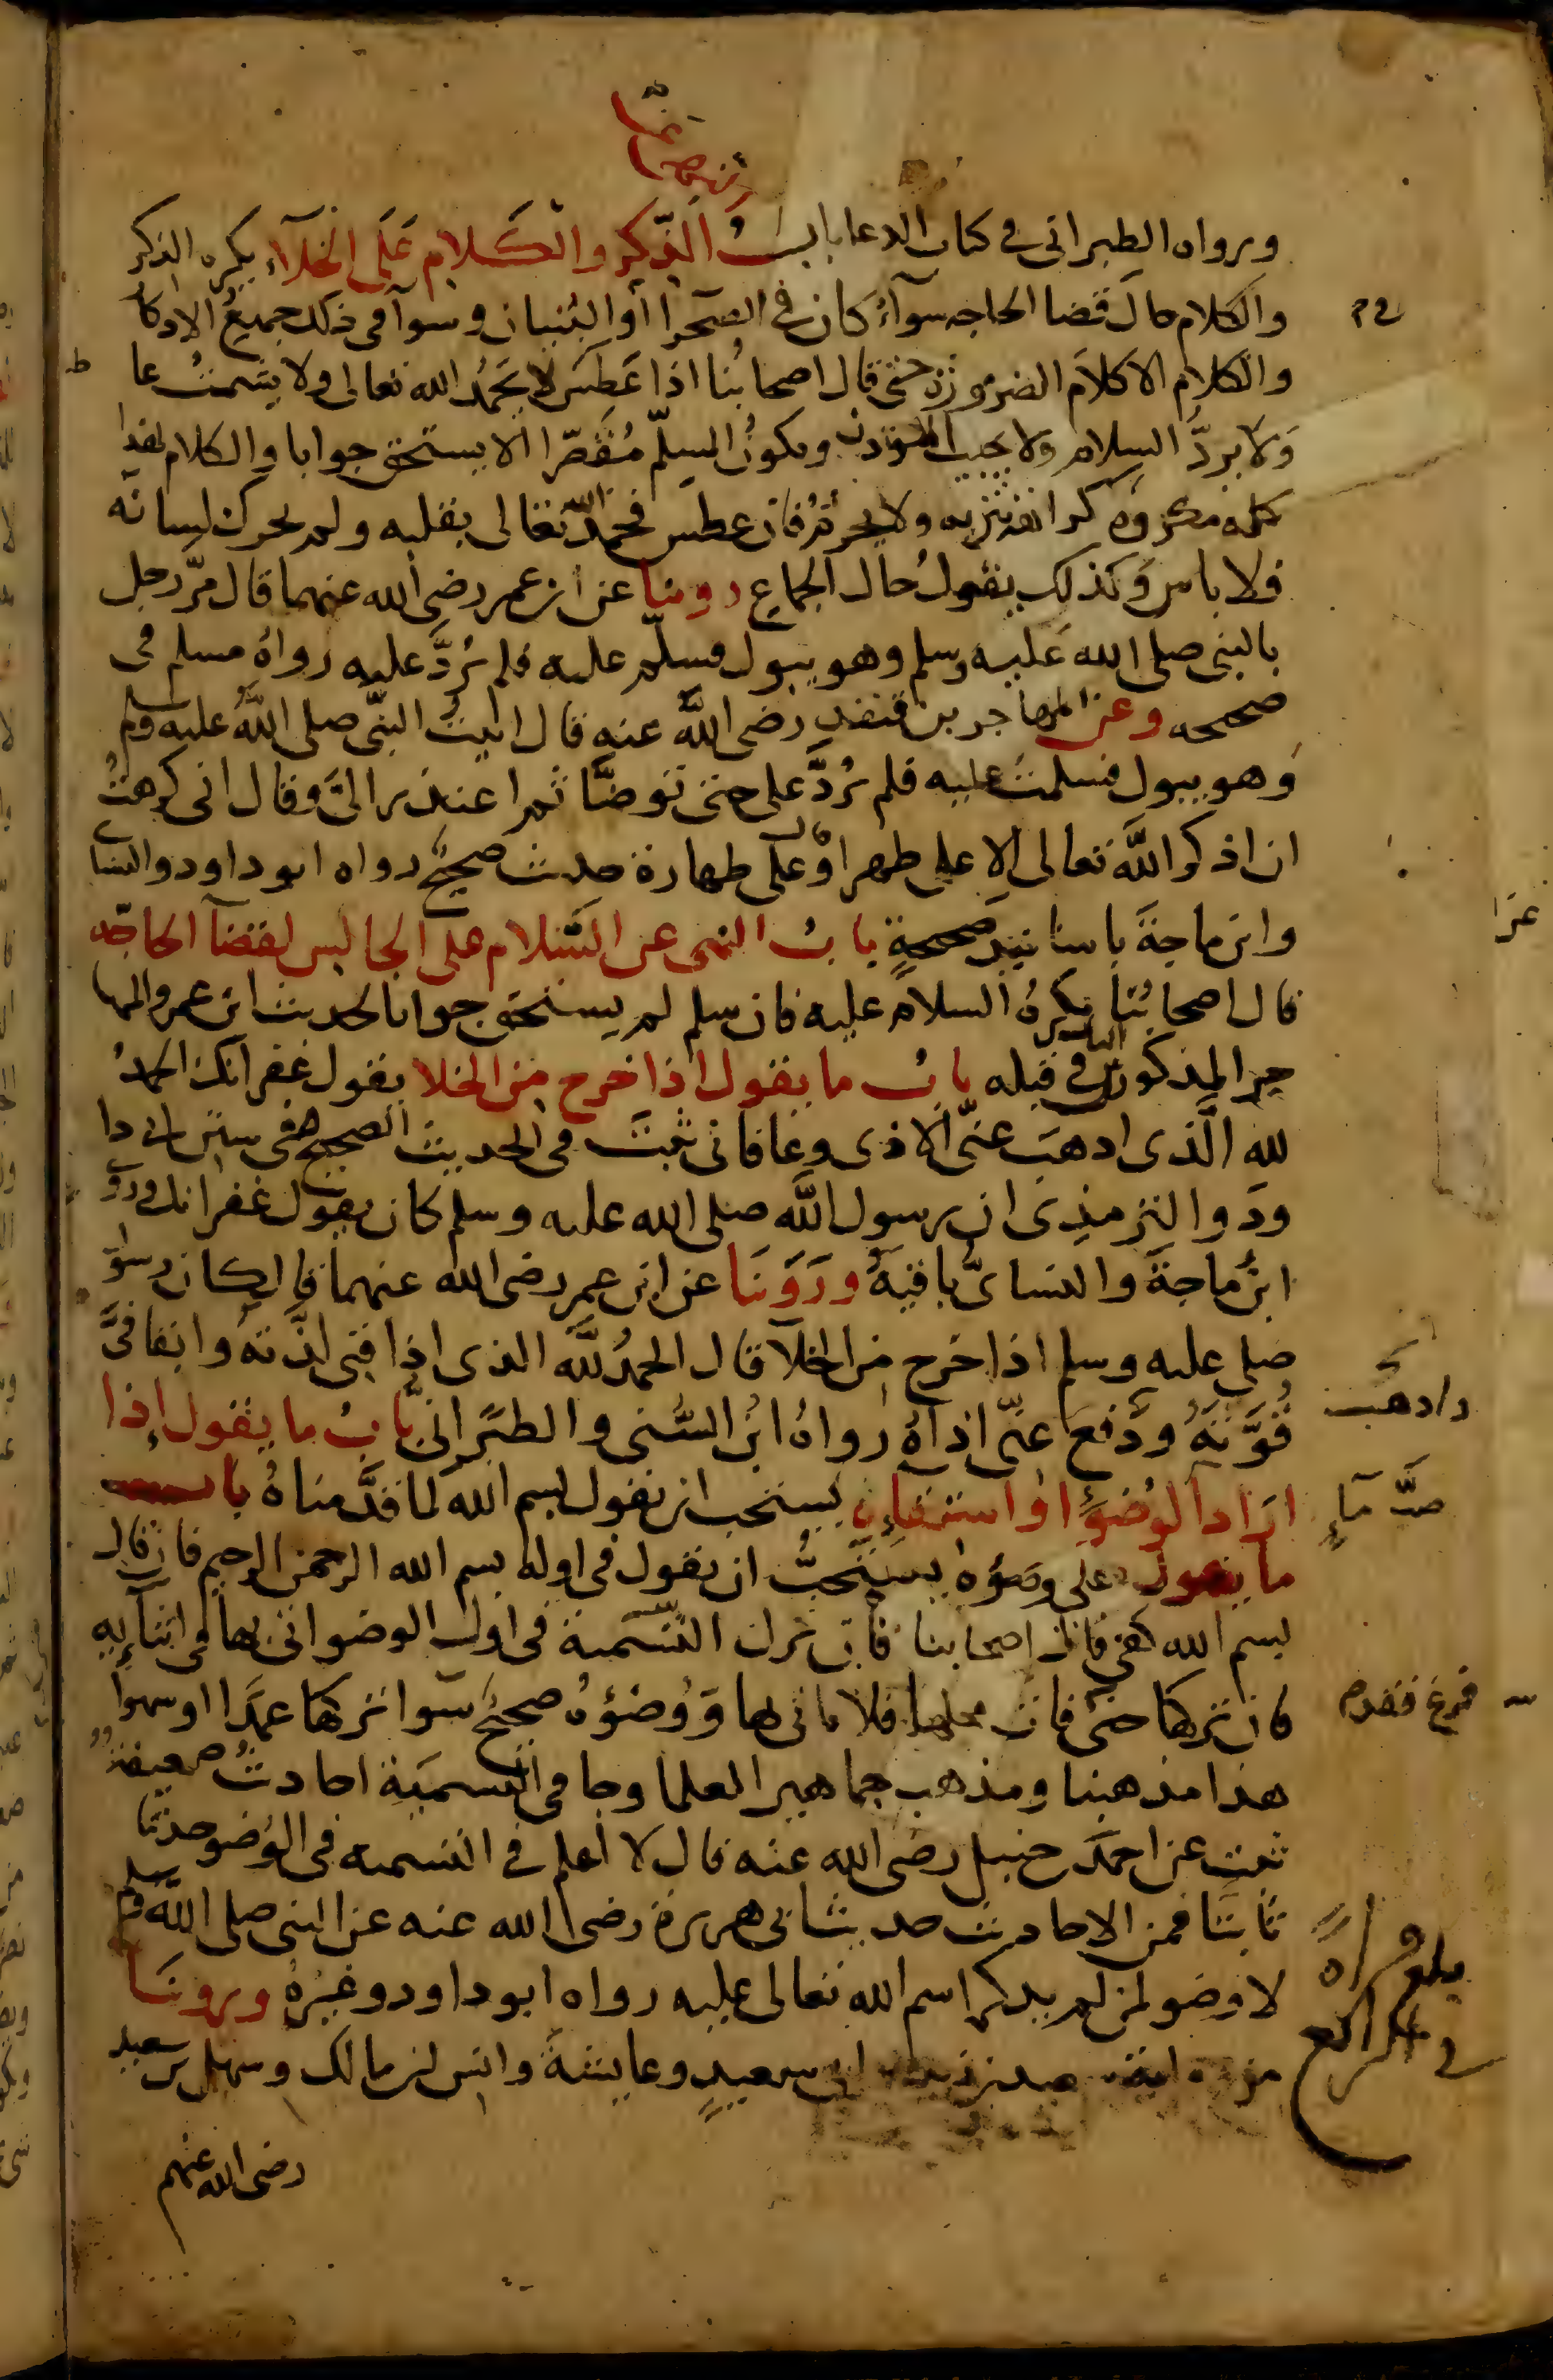 ورواه الطبرانى فى كتاب الدعا بابُ الذّكر والكَلام عَلَى الخلآء يكره الذكر
والكلام حالَ قضا الحاجه سوآءً كان فى الصّحرا أو البُنيان وسوآ فى ذلك جميعُ الاذكا
والكلام الا كلامَ الضرُورَة حتّى قال اصحابُنا اذا عَطِسَ لا يَحمُد الله تعالى ولا يشمتُ عا
وَلا يردُّ السلام ولا يجيب المؤذن ويكونُ المسلّم مُقَصّرا لا يستحق جوابا والكلام بهذا
كله مكروه كراهة تنزيه ولا يحرُم فان عطس فحمد الله تعالى بقلبه ولم يحرك لسانه
فلا باس وكذلك يفعلُ حال الجماع روينا عن ابن عمر رضى الله عنهما قال مرَّ رجل
بالنبى صلى الله عليه وسلم وهو يبول فسلّم عليه فلم يُردَّ عليه رواهُ مسلم فى
صحيحه وعن المهاجر بن قنفذ رضى اللّه عنه قال اتيتُ النبّى صلى اللّه عليه وسلم
وَهو يبول فسلمتُ عليه فلم يُردَّ على حتى توضّا ثم اعتذر الىَّ وقال انى كرهتُ
ان اذكر اللّه تعالى الا على طهر او قال على طهارة حديث صحيحٌ رواه ابو داود والنسا
وابن ماجةَ باسانيد صحيحةٍ بابُ النهى عن السَّلام على الجالس لقضآ الحاجَه
قال اصحابُنا يكرهُ السلام عليه فان سلم لم يستحق جوابا لحديث ابن عمر والمها
جر المذكورين فى الباب قبله بابُ ما يقول اذا خرج من الخلا يقول غفرانك الحمدُ
للهِ الّذى اذهبَ عنّى الاذى وعافانى ثبتَ فى الحديث الصحيح فى سنن ابى دا
ود والترمذى ان رسول اللّه صلى الله عليه وسلم كان يقول غفرانك وروى
ابنُ ماجةَ والنسائىّ باقيَهُ ورَوَينَا عن ابن عمر رضى الله عنهما قال كان رسول
صلى عليه وسلم اذا خرج من الخلآ قال الحمدُ للّه الذى اذاقنى لذّتهُ وابقا فىَّ
قُوَّتَهُ ودَفعَ عنّى اذاهُ رواهُ ابنُ السُّنى والطبَرانى بابُ ما يقول إذا
ارَادَ الوُضوءَ او استقاءَ يستحب ان يقول بسم الله لما قدَّمناهُ باب
ما يقول على وضوءه يستحبُّ ان يقول فى اوله بسم الله الرحمن الرحيم فان قال
بسم الله كفى قال اصحابنا فان ترك التّسمية فى اول الوضو اتى بها فى اثنآيِهِ
فان تركها حتى فات محلها فلا ياتى بها وَوُضُؤهُ صحيحٌ سَوا تركها عمدًا او سهوا
هذا مذهبنا ومذهب جماهير العلما وجا فى التسميَةِ احاديثُ ضعيفةٌ
ثبت عن احمدَ حنبل رضى الله عنه قال لا اعلم فى التسميه فى الوُضو حديثا
ثابتًا فمن الاحاديث حديث ابى هريرة رضى الله عنه عن النبى صلى اللّه وسلم
لا وضو لمن لم يذكر اسم الله تعالى عليه رواه ابو داود وغيرُهُ وروينَا
من سعيدٍ وعايشةَ وانس بن مالك وسهل بن سعد
رضى الله عنهم
واذهب
صبَّ ماءٍ
فرغ فقدم
بلغ قراة